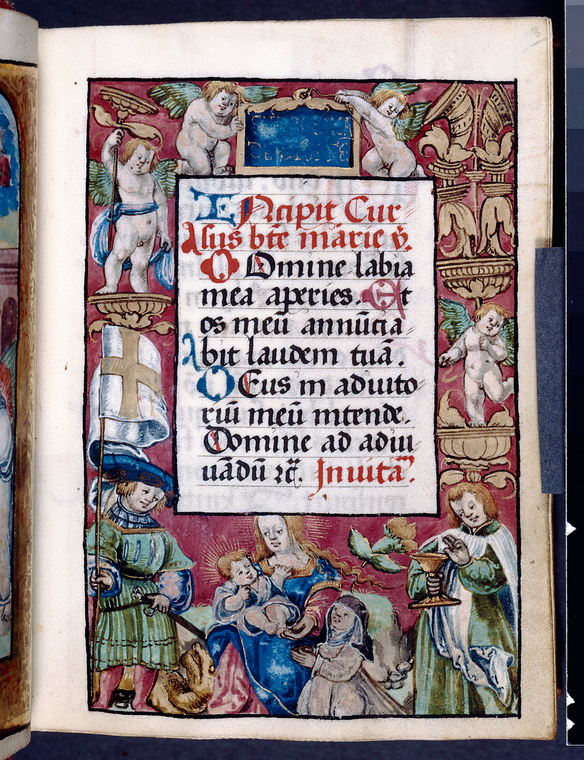 3
INcipit Cur
sus bte marie v̄.
DOmine labia
mea aperies. Et
os meū annūcia
bit laudem tuā.
DEus in adiuto
riū meū intende.
Domine ad adiu
uādū ꝛc̄. Inuitā.